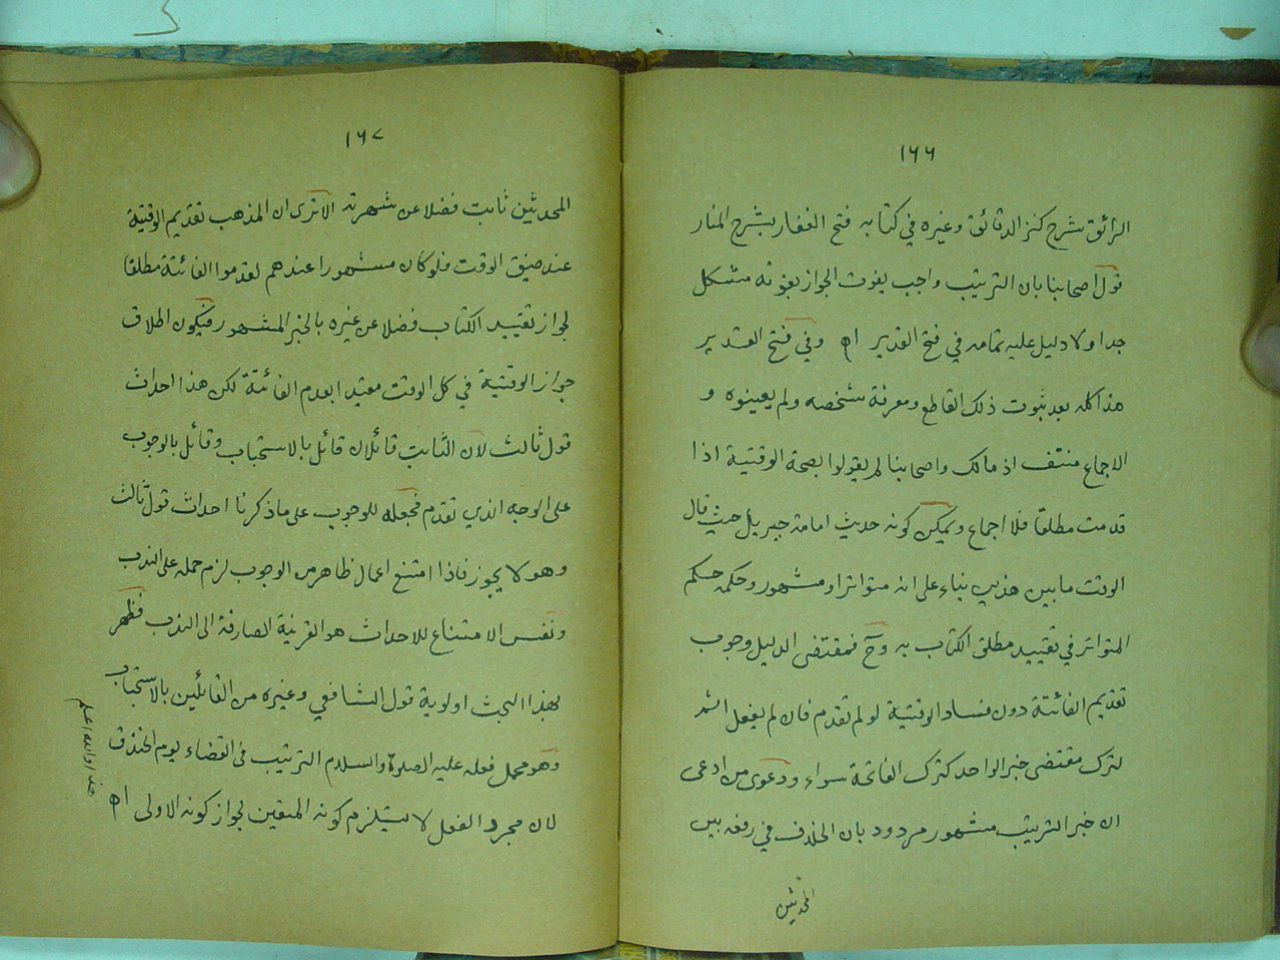 ١٦٦
الرائق شرح كنز الدقائق وغيره في كتابه فتح الغفار بشرح المنار
قول اصحابنا بان الترتيب واجب يفوت الجواز بفوته مشكل
جدا ولا دليل عليه تمامه في فتح القدير اه وفي فتح القدير
هذا كله بعد ثبوت ذلك القاطع ومعرفة شخصه ولم يعينوه و
الاجماع منتف اذ مالك واصحابنا لم يقولوا بصحة الوقتية اذا
قدمت مطلقا فلا اجماع ويمكن كونه حديث امامة جبريل حيث قال
الوقت مابين هذين بناء على انه متواترا ومشهور وحكمه حكم
المتواتر في تقييد مطلق الكتاب به وح فمقتضى الدليل وجوب
تقديم الفائتة دون فساد الوقتية لو لم تقدم فان لم يفعل اثم
لترك مقتضى خبر الواحد كترك الفاتحة سواء ودعوى من ادعى
ان خبر الترتيب مشهور مردود بان الخلاف في رفعه بين
المحدثين
١٦٧
المحدثين ثابت فضلا عن شهرته الا ترى ان المذهب تقديم الوقتية
عند ضيق الوقت فلو كان مشهورا عندهم لقدموا الفائتة مطلقا
لجواز تقييد الكتاب فضلا عن غيره بالخبر المشهور فيكون اطلاق
جواز الوقتية في كل الوقت مقيدا بعدم الفائتة لكن هذا احداث
قول ثالث لان الثابت قائلان قائل بالاستحباب وقائل بالوجوب
على الوجه الذي تقدم فجعله للوجوب على ماذكرنا احداث قول ثالث
وهو لا يجوز فاذا امتنع اعمال ظاهر من الوجوب لزم حمله على الندب
ونفس الامتناع للاحداث هو القرينة الصارفة الى الندب فظهر
بهذا البحث اولوية قول الشافعي وغيره من القائلين بالاستحباب
وهو محمل فعله عليه الصلوة والسلام الترتيب في القضاء يوم الخندق
لان مجرد الفعل لا يستلزم كونه المتعين لجواز كونه الاولى اه
هذا والله اعلم